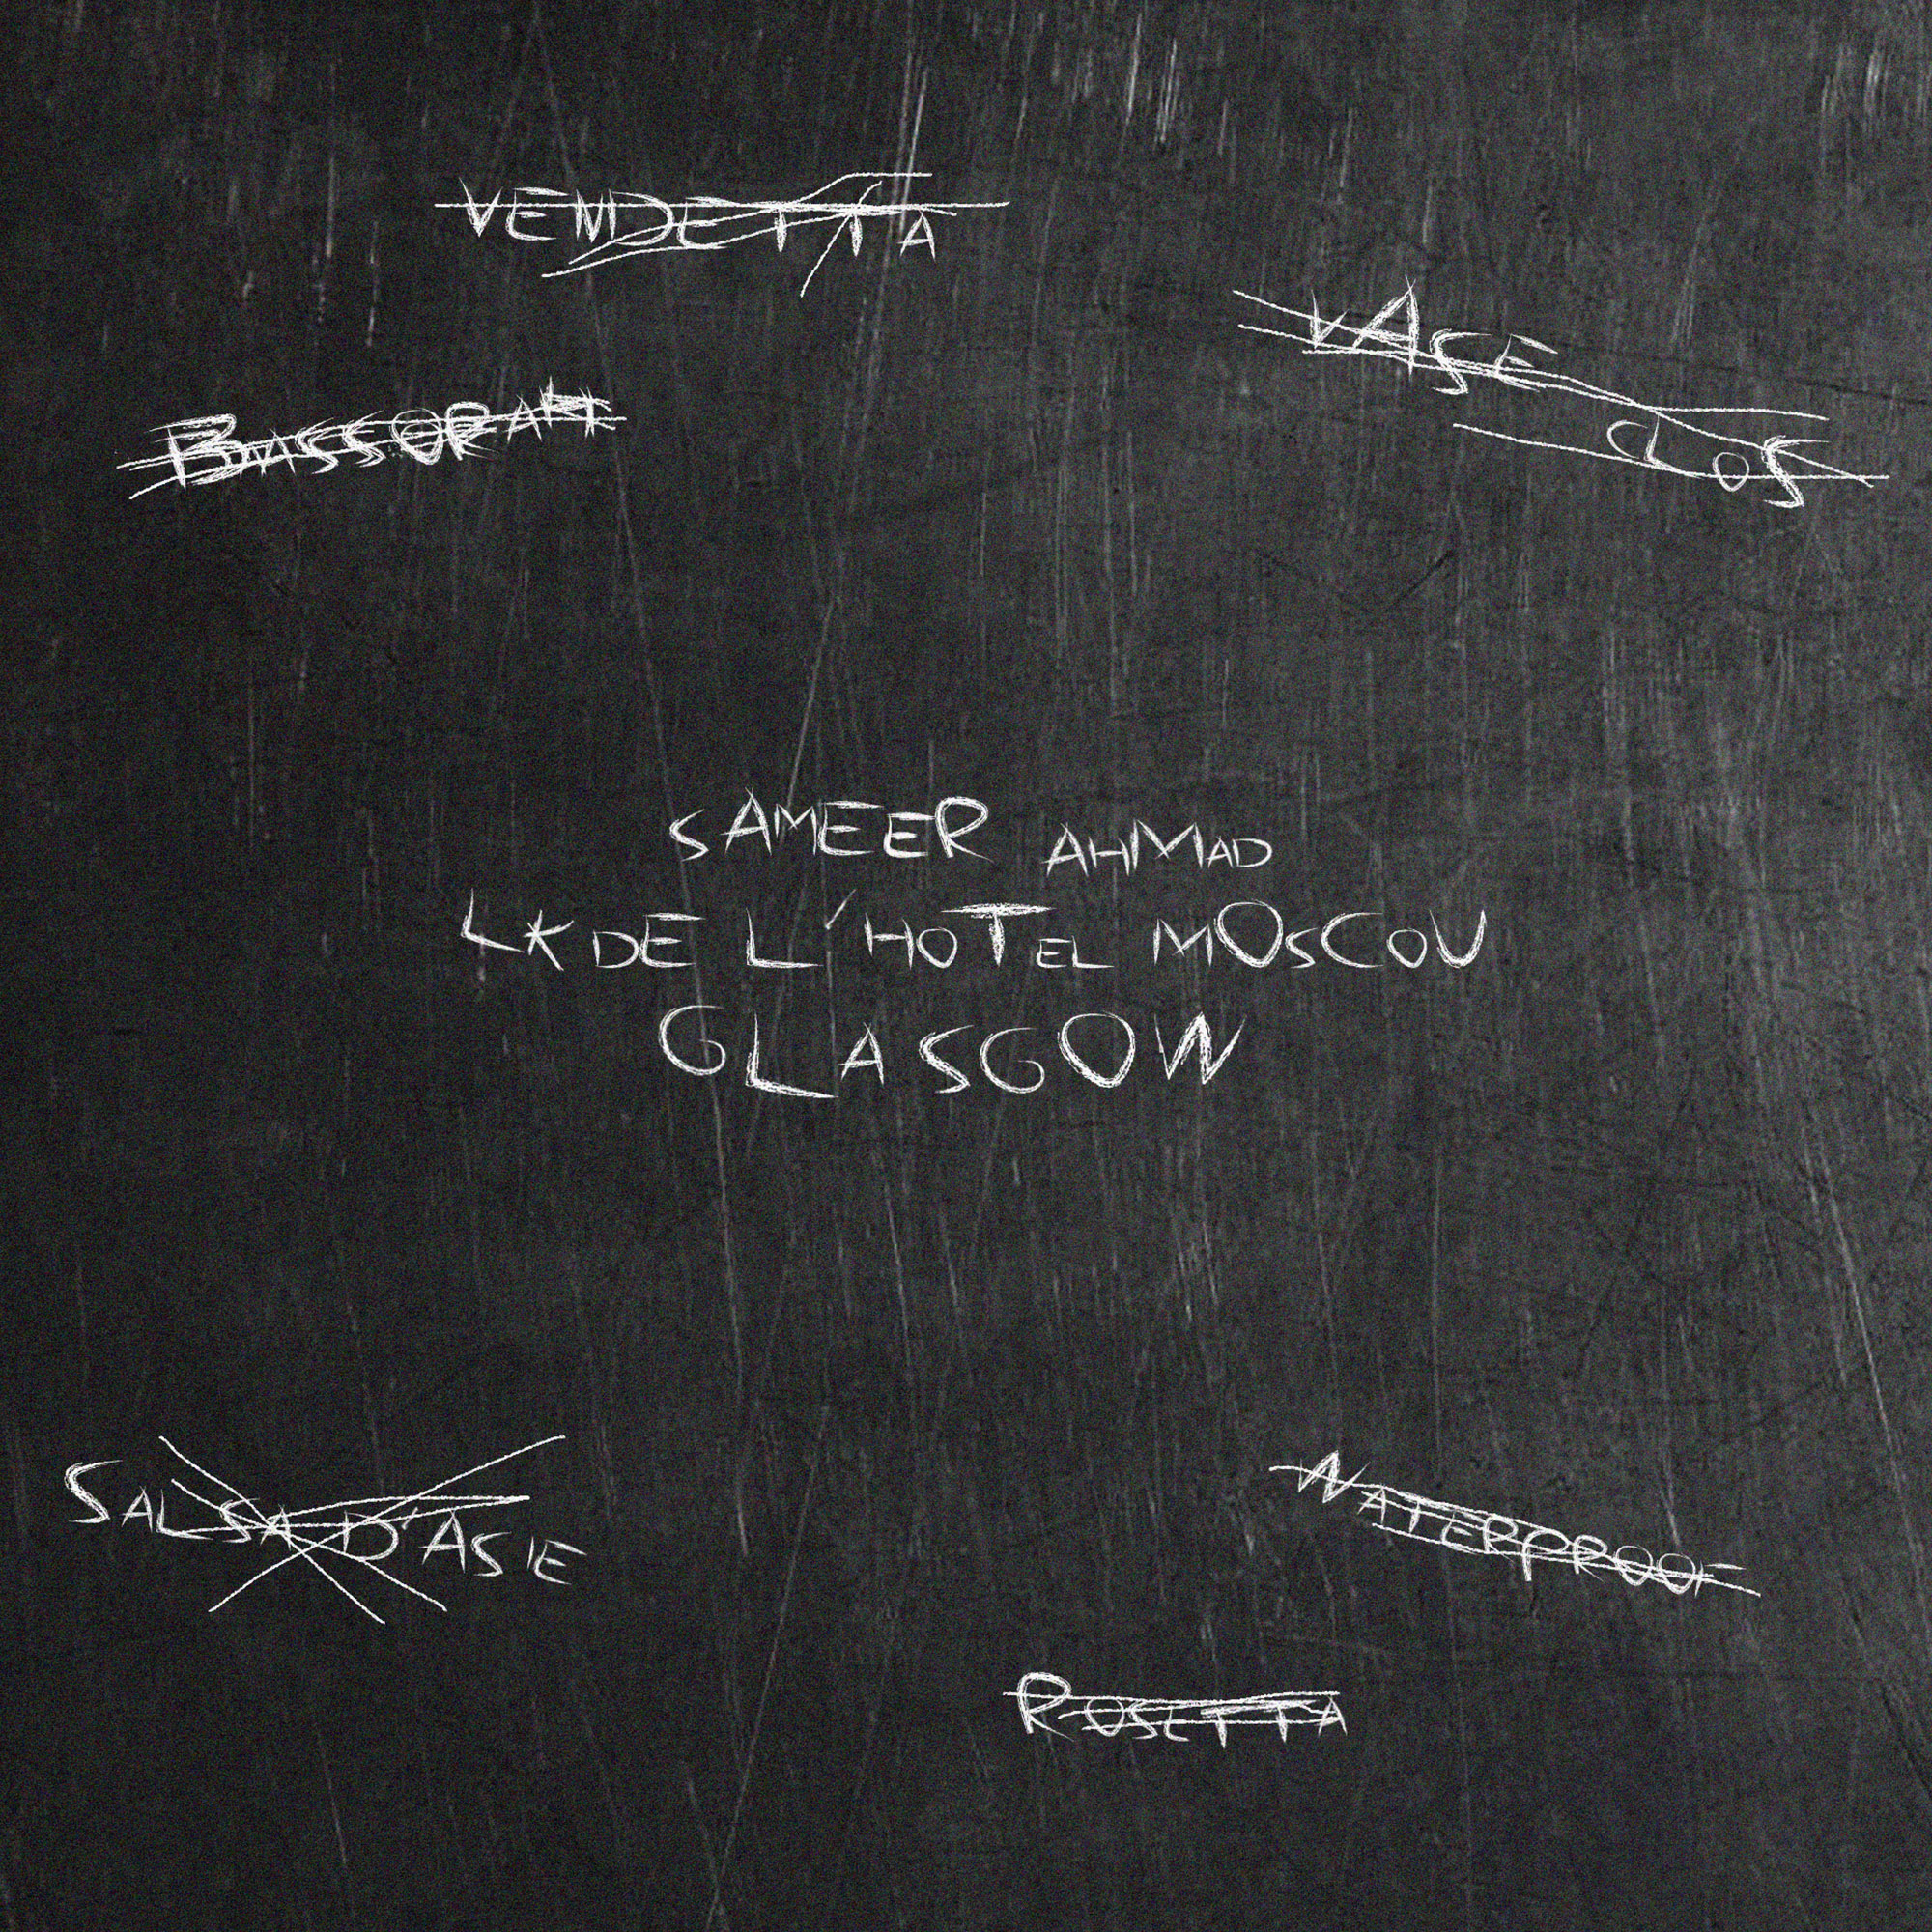 VENDETTA
VASE
CLOS
BASSORAH
SAMEER AHMAD
LK DE L'HOTEL MOSCOU
GLASGOW
SALSA D'ASIE
WATERPROOF
ROSETTA